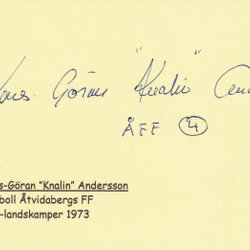 Göran "Knalin"
ÅFF 4
s-Göran "Knalin" Andersson
boll Åtvidabergs FF
-landskamper 1973